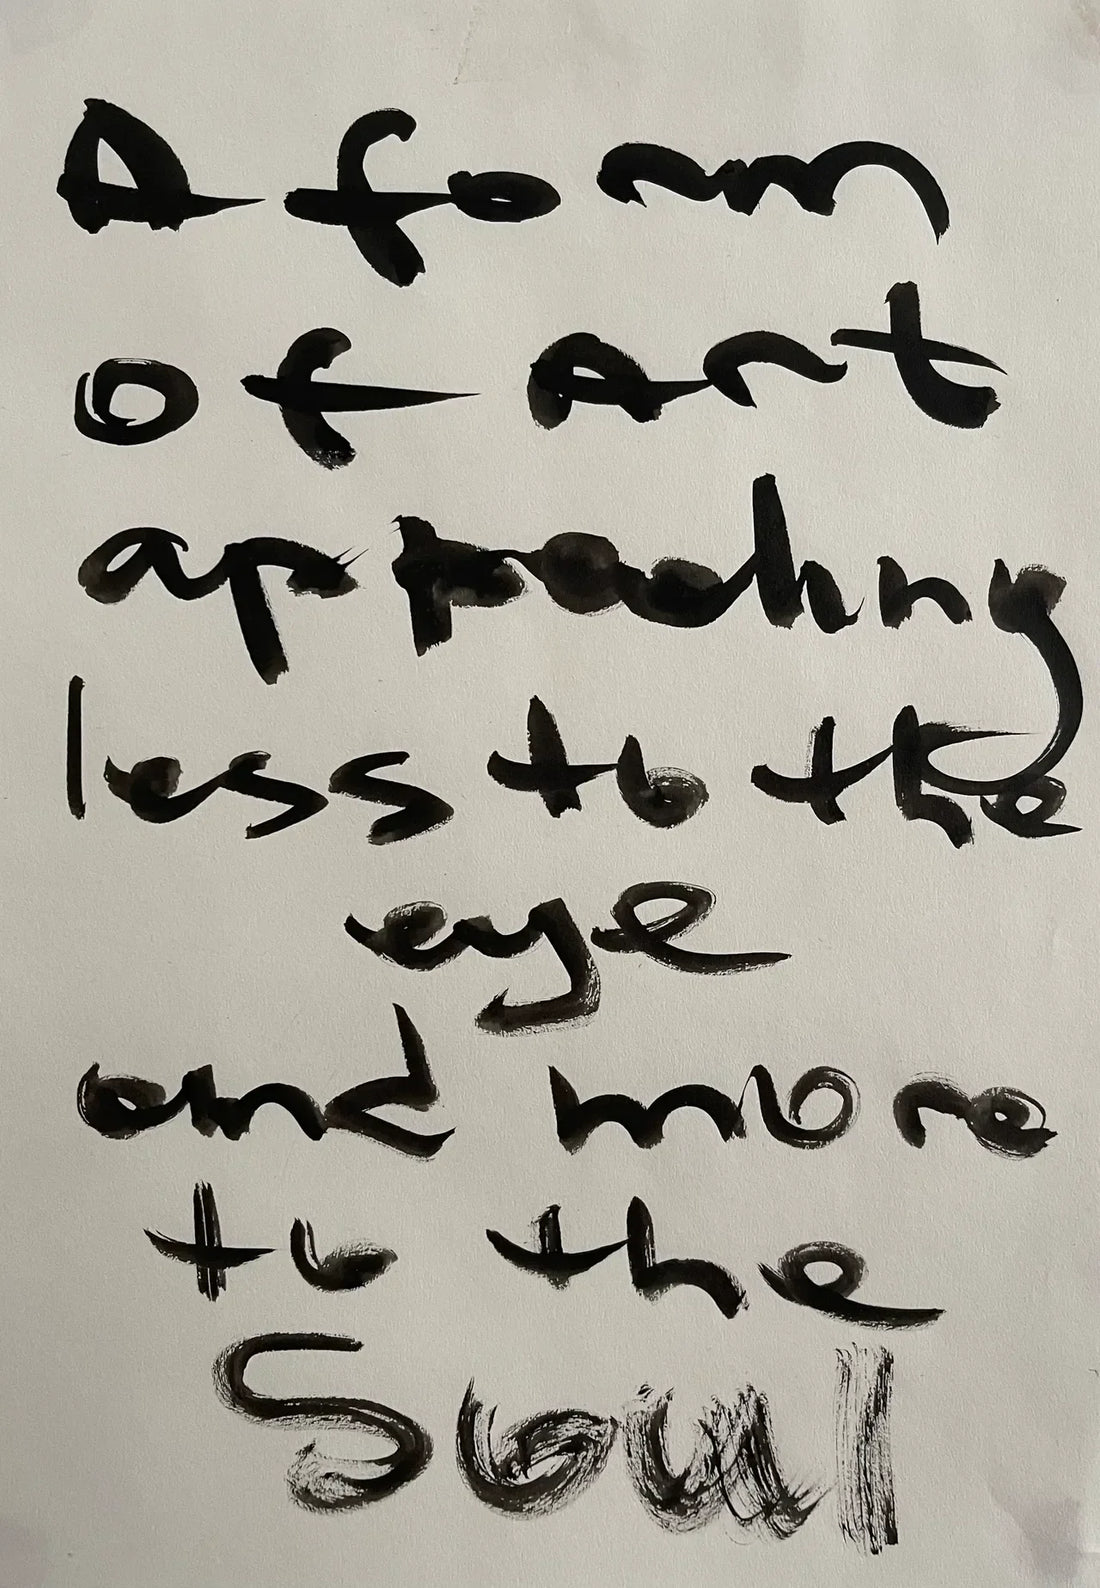 A form
of art
appealing
less to the
eye
and more
to the
Soul